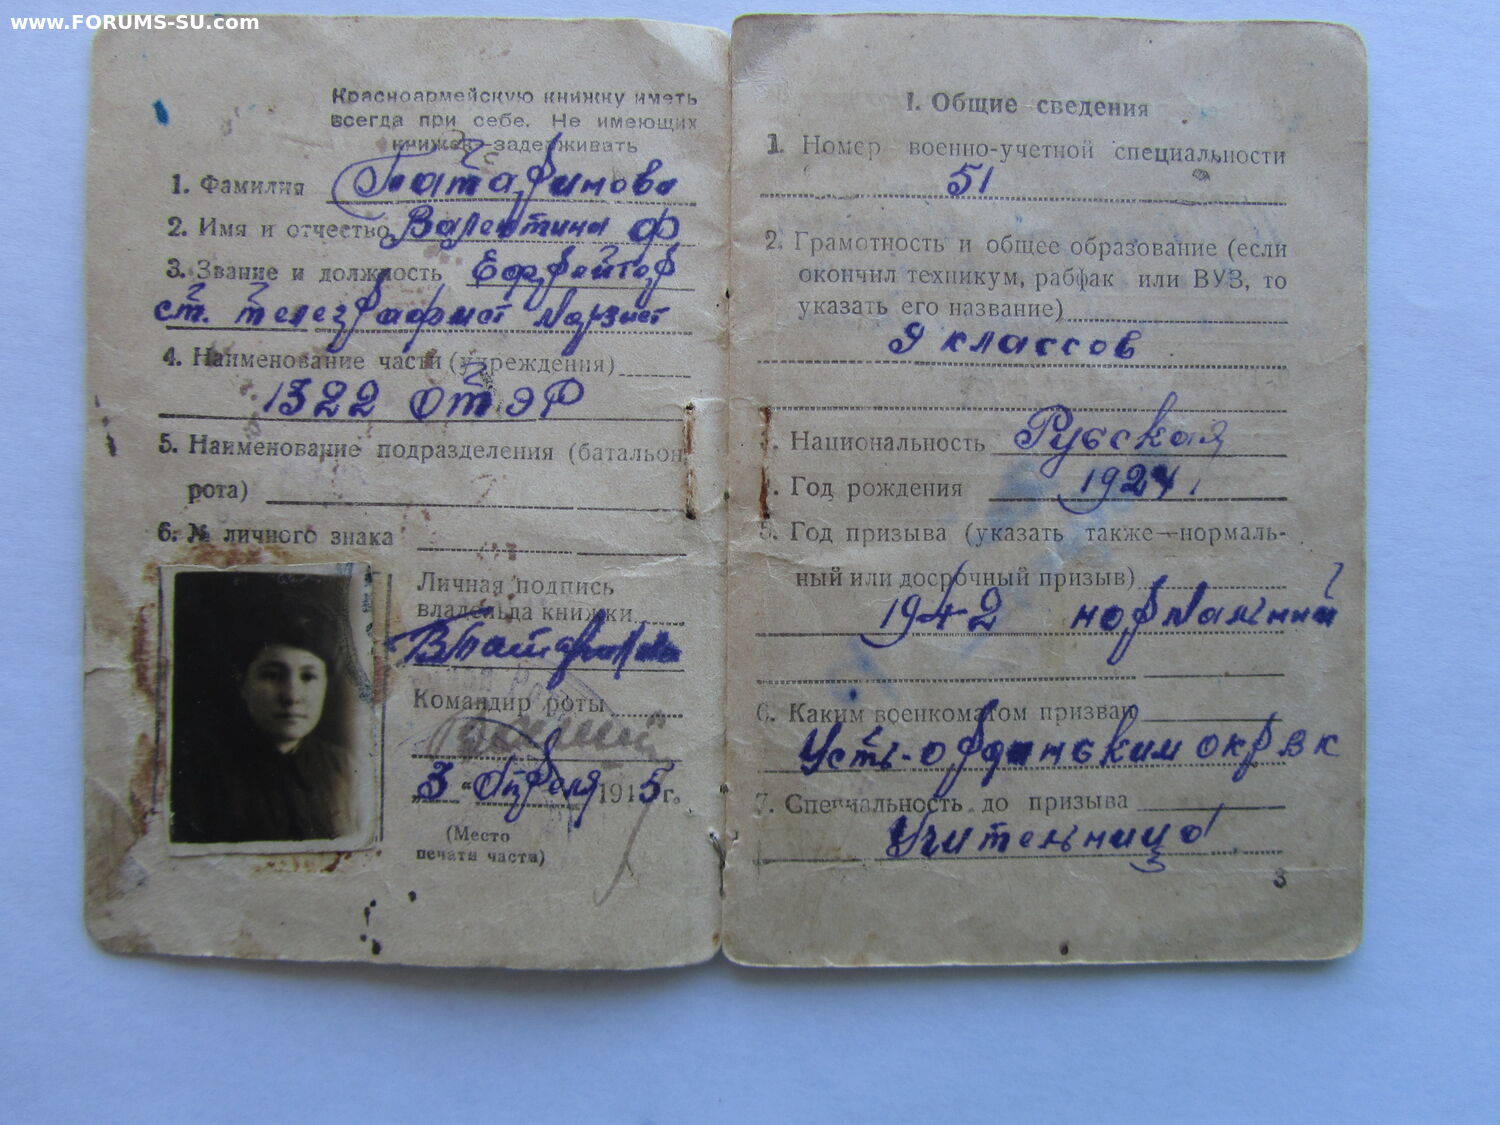 www.FORUMS-SU.com
Красноармейскую книжку иметь
всегда при себе. Не имеющих
книжек—задерживать
1. Фамилия Татаринова
2. Имя и отчество Валентина Ф
3. Звание и должность Ефрейтор
ст. телеграфист морзист
4. Наименование части (учреждения)
1322 ОТЭР
5. Наименование подразделения (батальон,
рота)
6. № личного знака
Личная подпись
владельца книжки
ВТатаринова
Командир роты
„3“ Апреля 1945 г.
(Место
печати части)
I. Общие сведения
1. Номер военно-учетной специальности
51
2. Грамотность и общее образование (если
окончил техникум, рабфак или ВУЗ, то
указать его название)
9 классов
3. Национальность Русская
4. Год рождения 1924
5. Год призыва (указать также—нормаль-
ный или досрочный призыв)
1942 нормальный
6. Каким военкоматом призван
Усть-ордынским окрвк
7. Специальность до призыва
Учительница
3